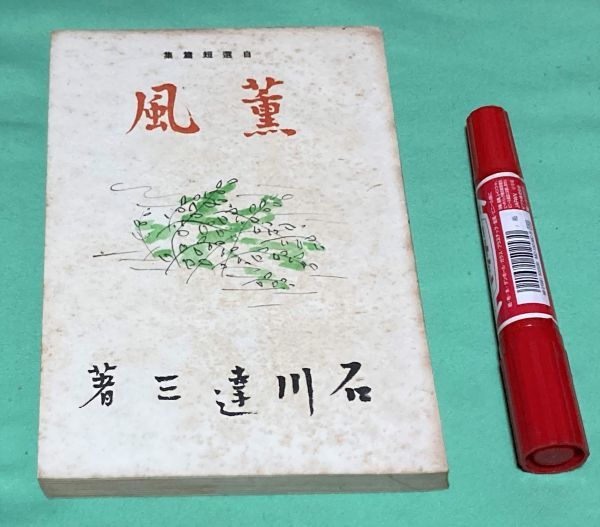 自選短篇集
薫風
石川達三著